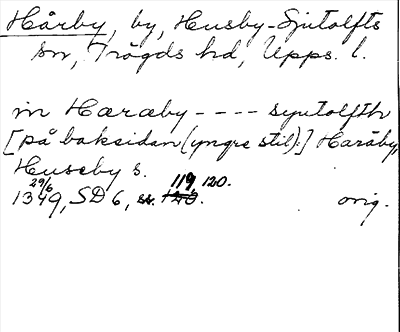 Hårby, by, Husby-Sjutolfts
sn, Trögds hd, Upps. l.
in Haræby - - - - siutolfth
[på baksidan (yngre stil):] Haràby,
Huseby s.
29/6
1349, SD 6, s. 119, 120. orig.